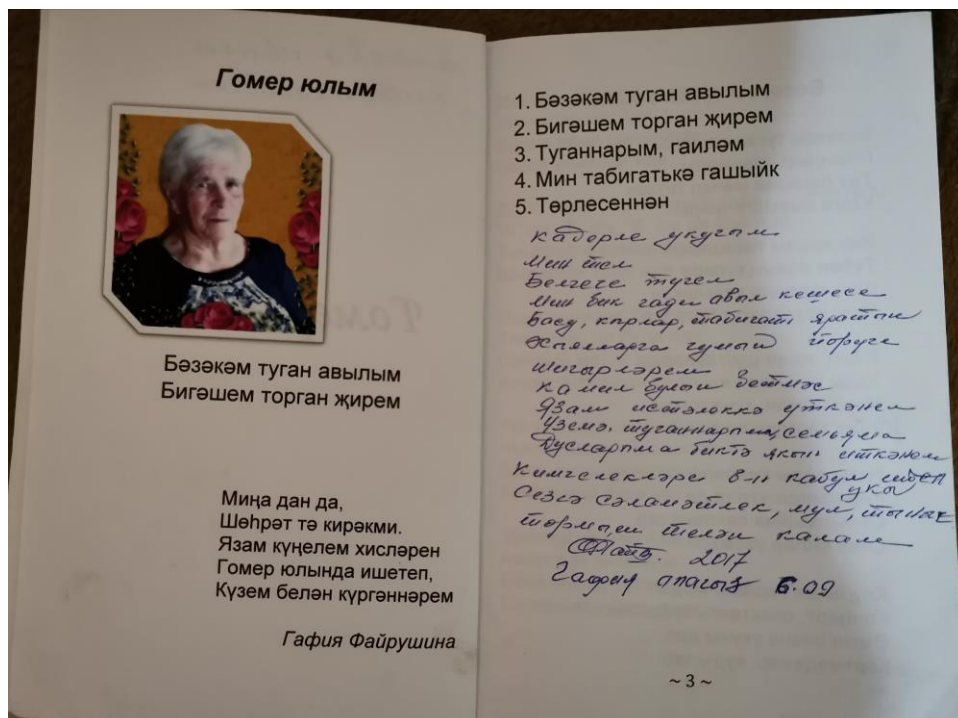 Гомер юлым
Бәзәкәм туган авылым
Бигәшем торган җирем
Миңа дан да,
Шөһрәт тә кирәкми.
Язам күңелем хисләрен
Гомер юлында ишетеп,
Күзем белән күргәннәрем
Гафия Файрушина
1. Бәзәкәм туган авылым
2. Бигәшем торган җирем
3. Туганнарым, гаиләм
4. Мин табигатькә гашыйк
5. Төрлесеннән
Кадерле укучым
Мин тел
Белгече түгел
Мин бик гади авыл кешесе
Басу, кырлар, табигать яратып
Хыялларга чумып йөрүче
Шигырләрем
камил булып бетмәс
Язам истәлеккә үткәнем
Үземә, туганнарыма, семьяма
Дусларыма биктә якын иткәнем
Кимчелекләре б-н кабул итеп
укы
Сезгә сәламәтлек, мул, тыныч
тормыш теләп калам
2017
Гафия апагыз 6.09
~ 3 ~